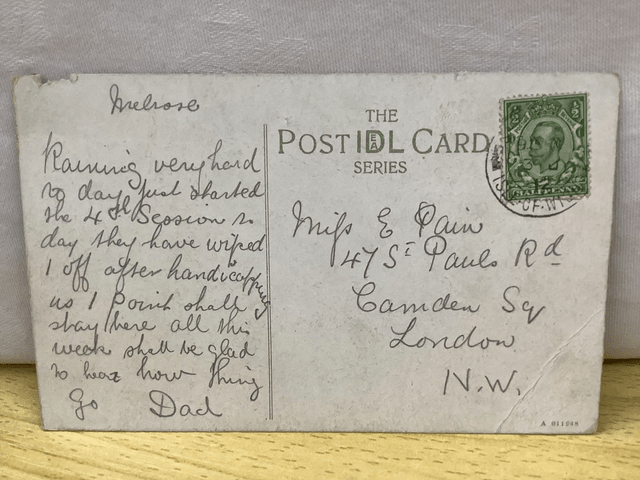 Melrose
Raining very hard
to day just started
the 4th Session to
day they have wiped
1 off after handicapping
us 1 Point shall
stay here all this
week shall be glad
to hear how thing
go Dad
THE
POST IDEAL CARD
SERIES
Miss E Pain
47 St Pauls Rd
Camden Sq
London
N.W.
HALFPENNY
12
ISLE-OF-WI
A 011948